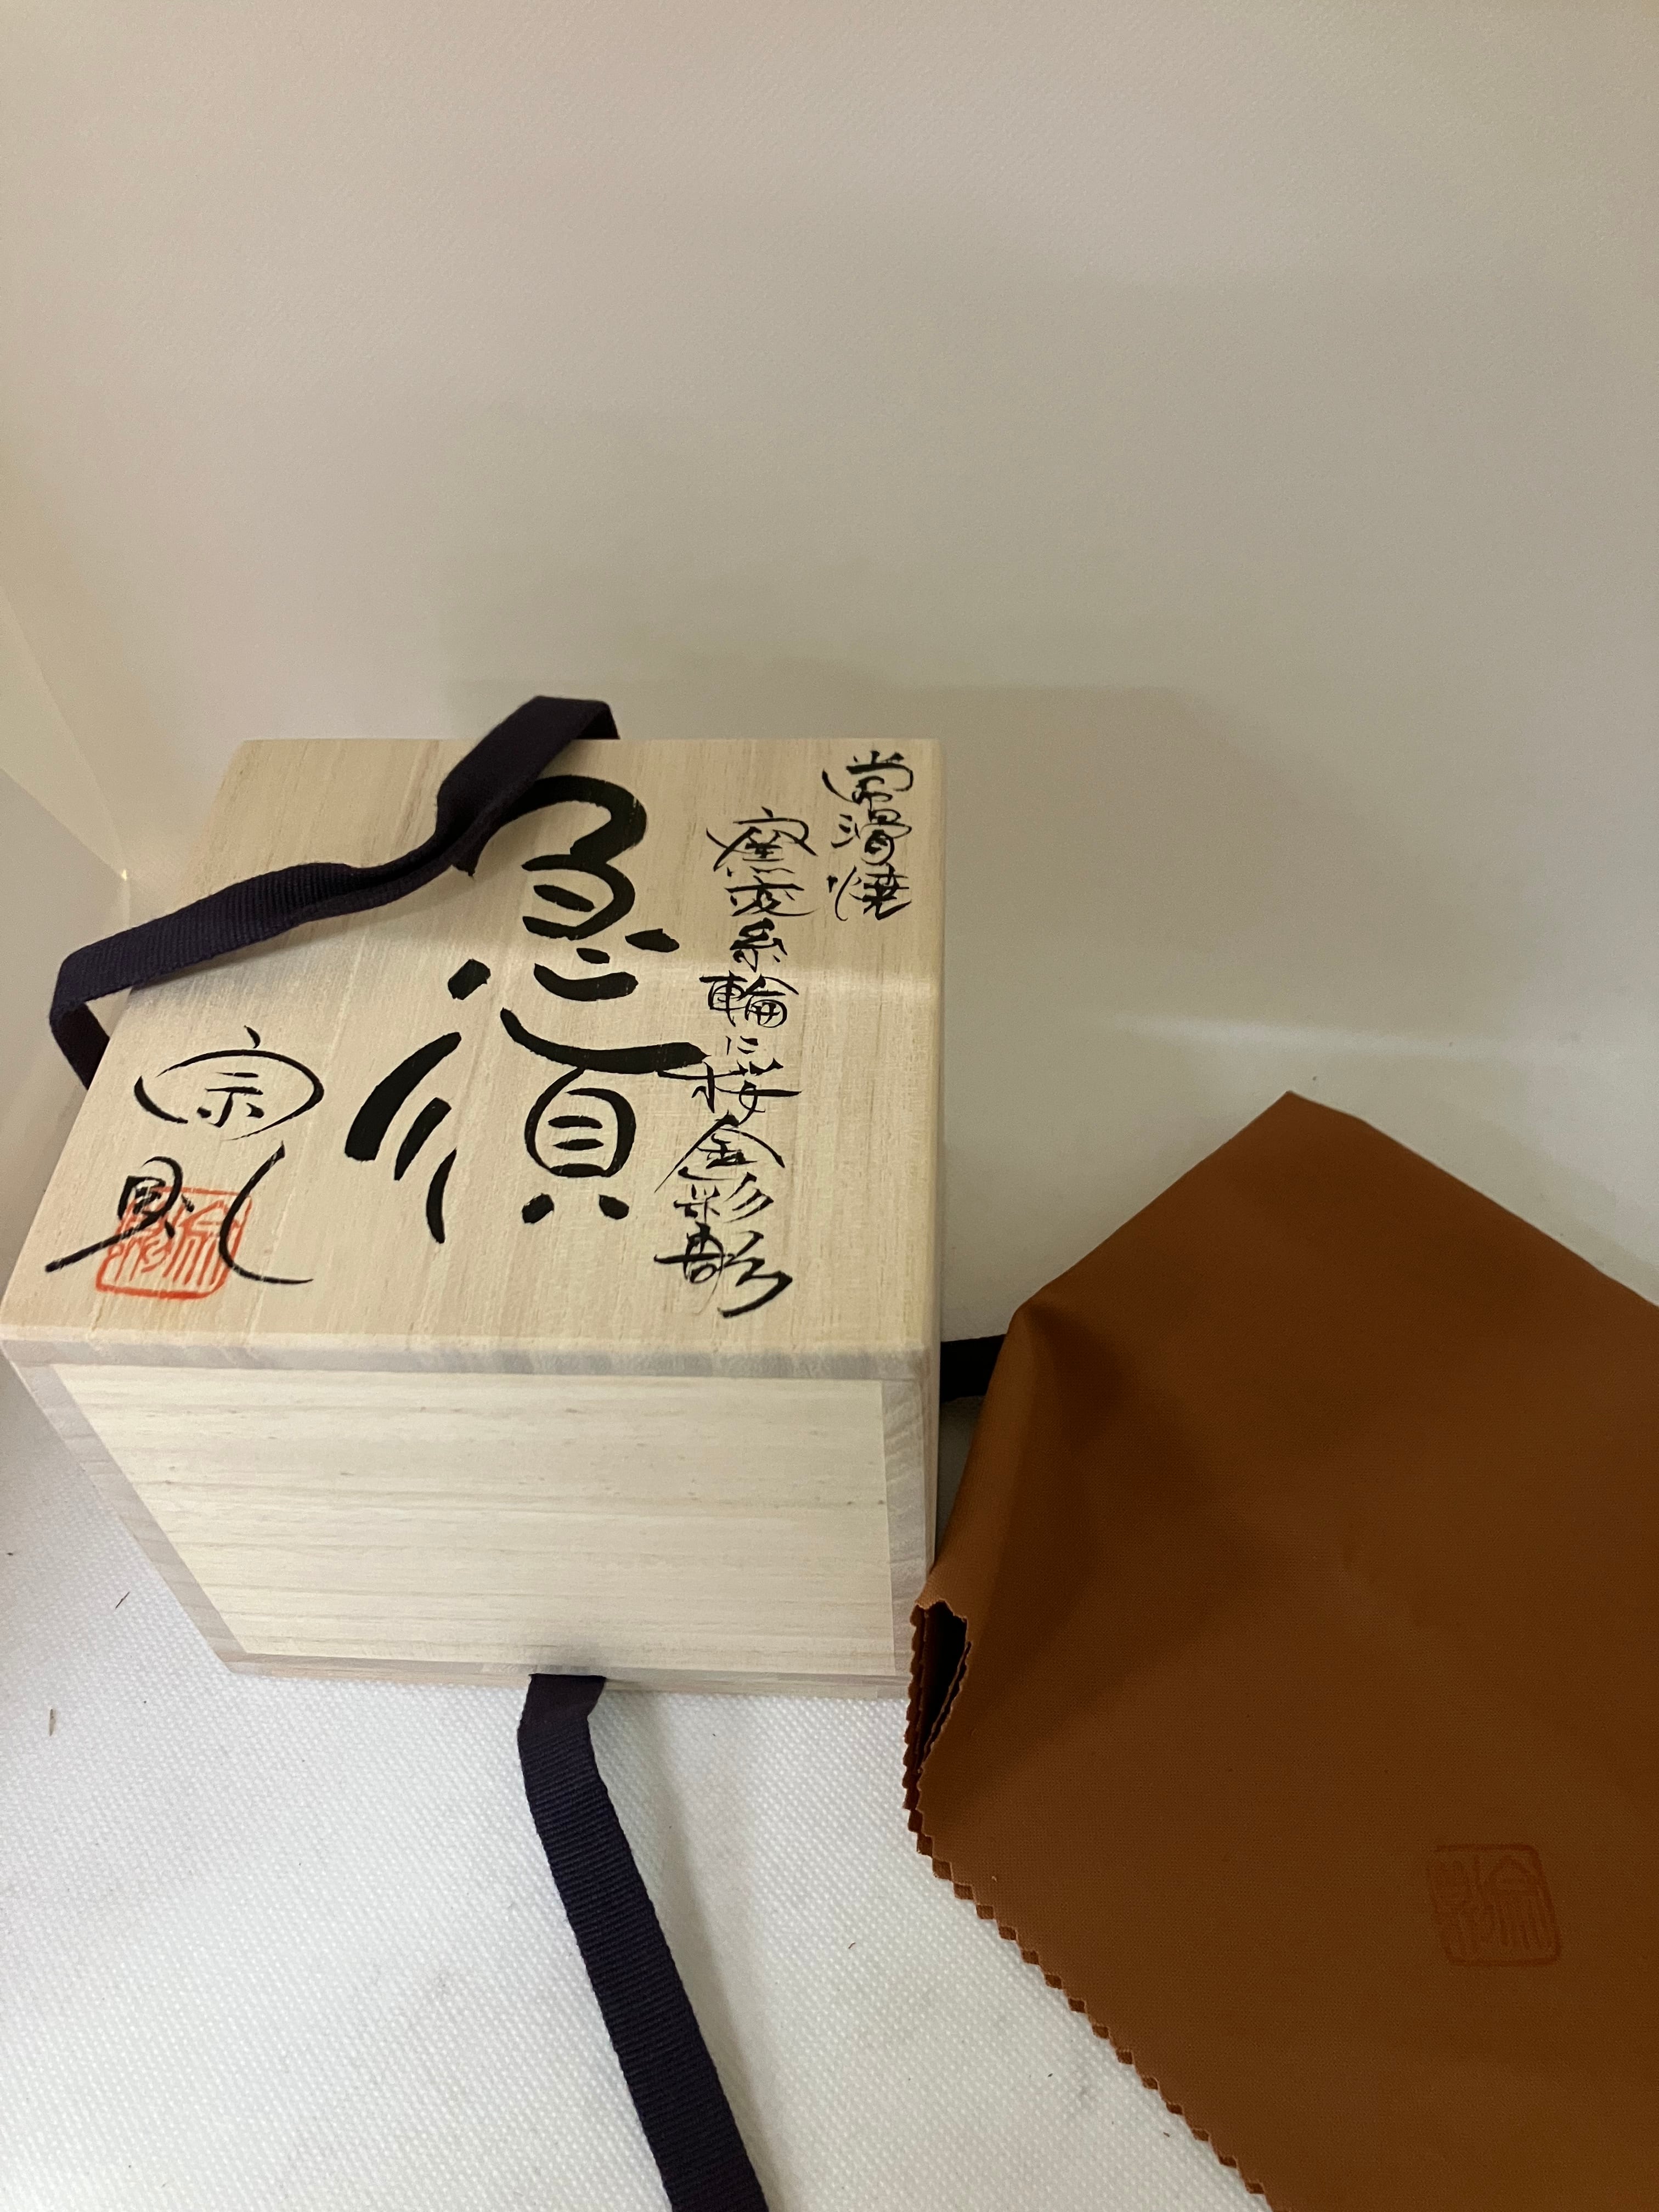 常滑焼
窯変糸輪に桜金彩彫
急須
宗則